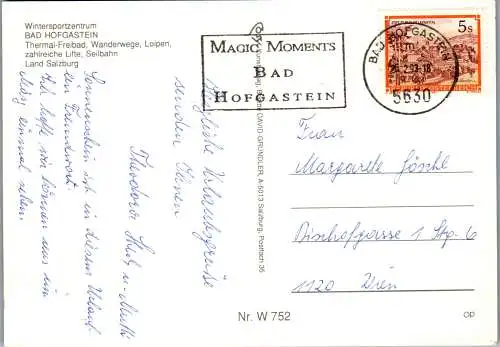 Wintersportzentrum
BAD HOFGASTEIN
Thermal-Freibad, Wanderwege, Loipen,
zahlreiche Lifte, Seilbahn
Land Salzburg
MAGIC MOMENTS
BAD
HOFGASTEIN
BAD HOFGASTEIN
5630
5s
DAVID GRÜNDLER, A-5013 Salzburg, Postfach 36
Herzliche Urlaubsgrüße
senden Ihnen
Theodora u. Mutti
Sonnenschein ist in diesem Urlaub
ein Fremdwort.
Ich hoffe wir können uns im
März einmal sehen.
Frau
Margarete Göschl
Bischofgasse 1 Stg. 6
1120 Wien
Nr. W 752